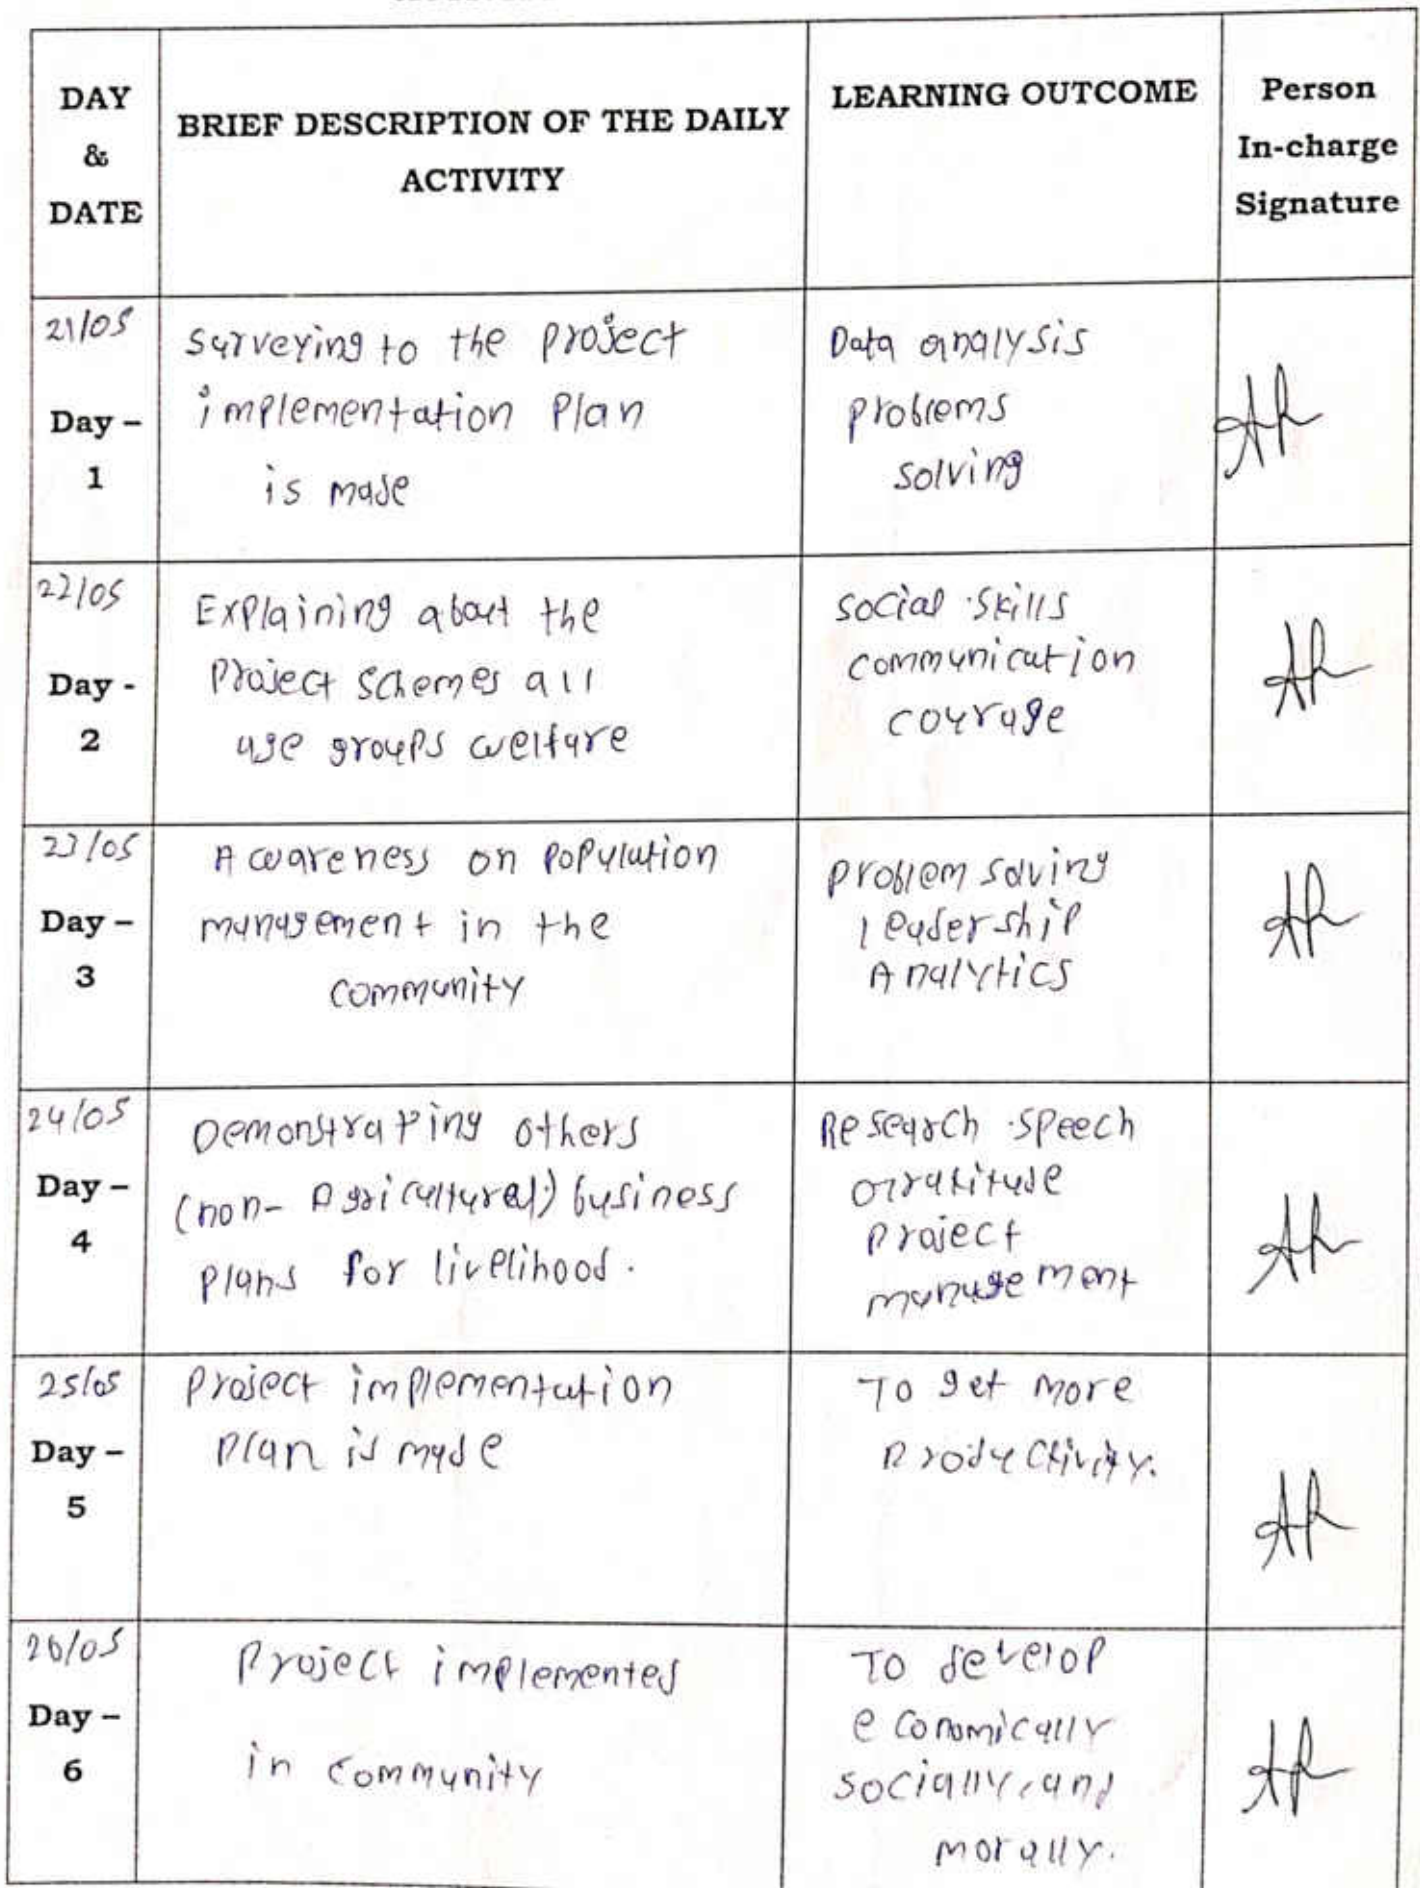 DAY
&
DATE
BRIEF DESCRIPTION OF THE DAILY
ACTIVITY
LEARNING OUTCOME
Person
In-charge
Signature
21/05
Day –
1
Surveying to the project
implementation plan
is made
Data analysis
problems
solving
22/05
Day -
2
Explaining about the
Project schemes all
age groups welfare
social skills
communication
courage
23/05
Day –
3
Awareness on population
management in the
community
problem solving
leadership
Analytics
24/05
Day –
4
Demonstrating others
(non-Agricultural) business
plans for livelihood.
Research speech
Project
management
25/05
Day –
5
Project implementation
plan is made
To get more
Productivity.
26/05
Day –
6
Project implemented
in community
To develop
economically
socially, and
morally.